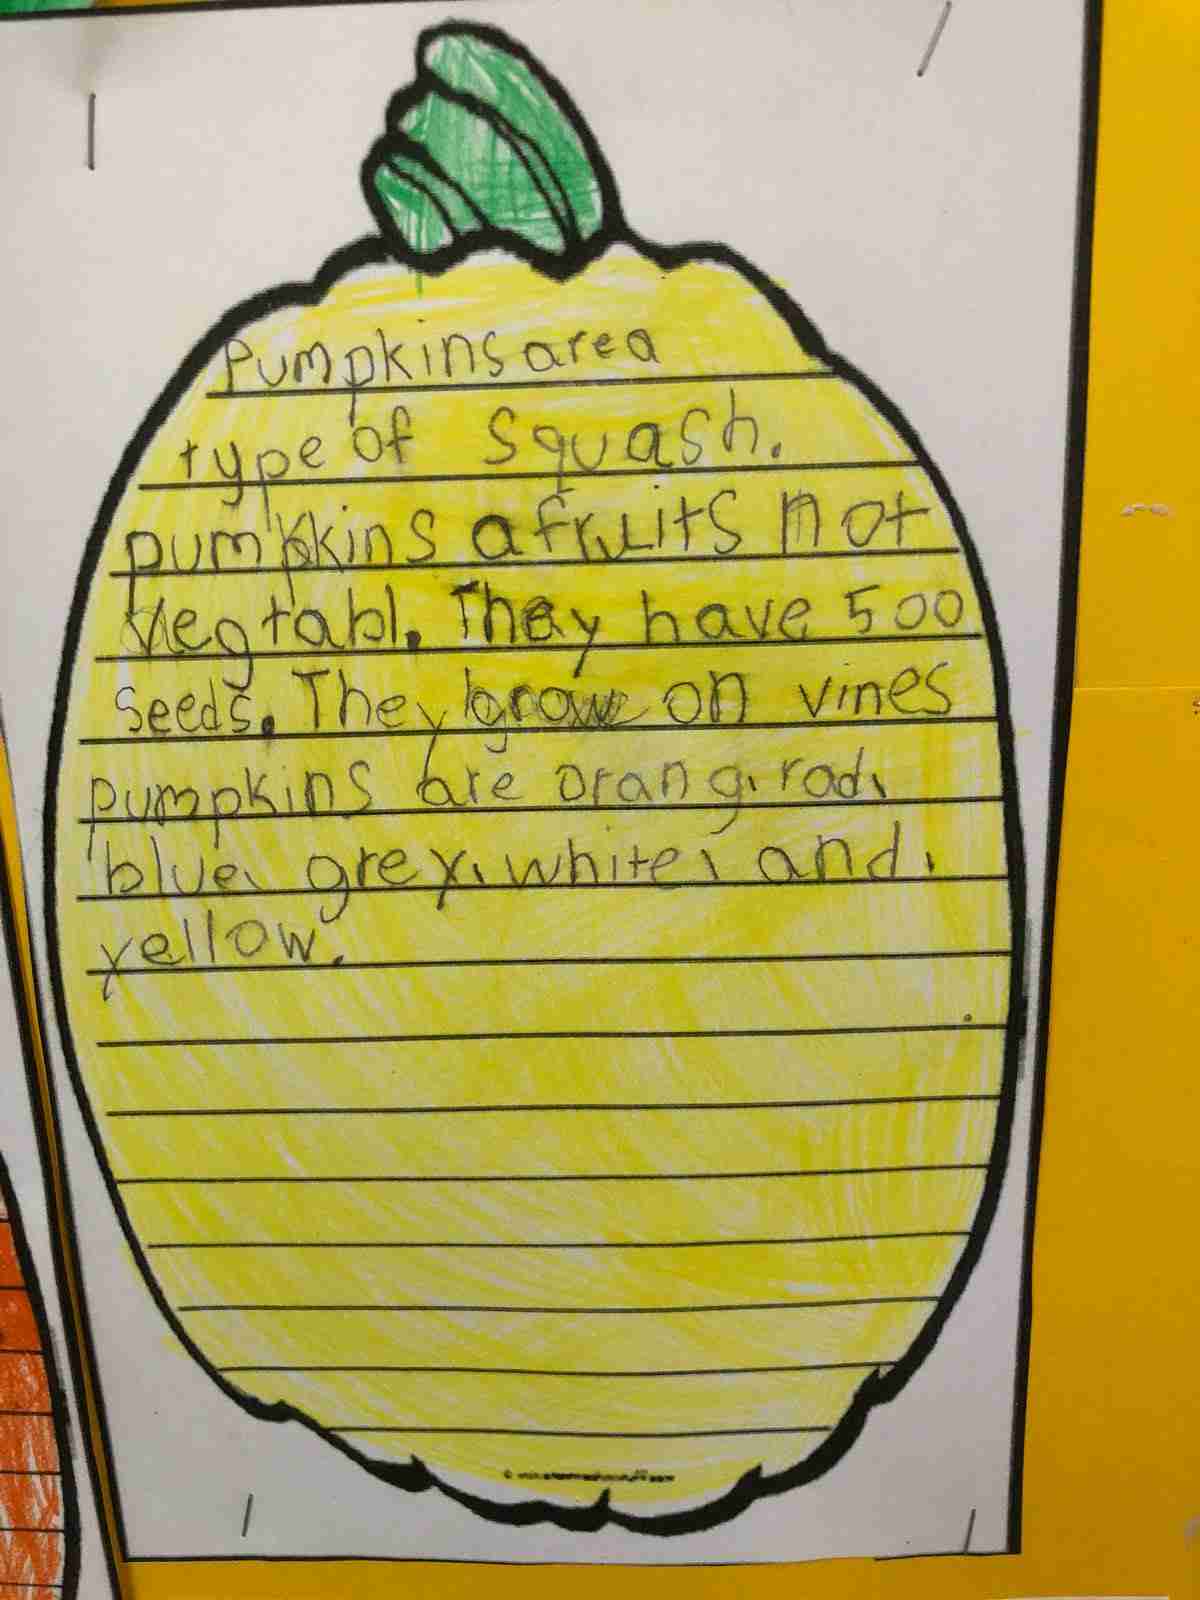 Pumpkins area
type of Squash.
pumpkins a fruits not
Vegtabl. They have 500
Seeds. They grow on vines
pumpkins are orang, rad,
blue, grey, white, and,
yellow.